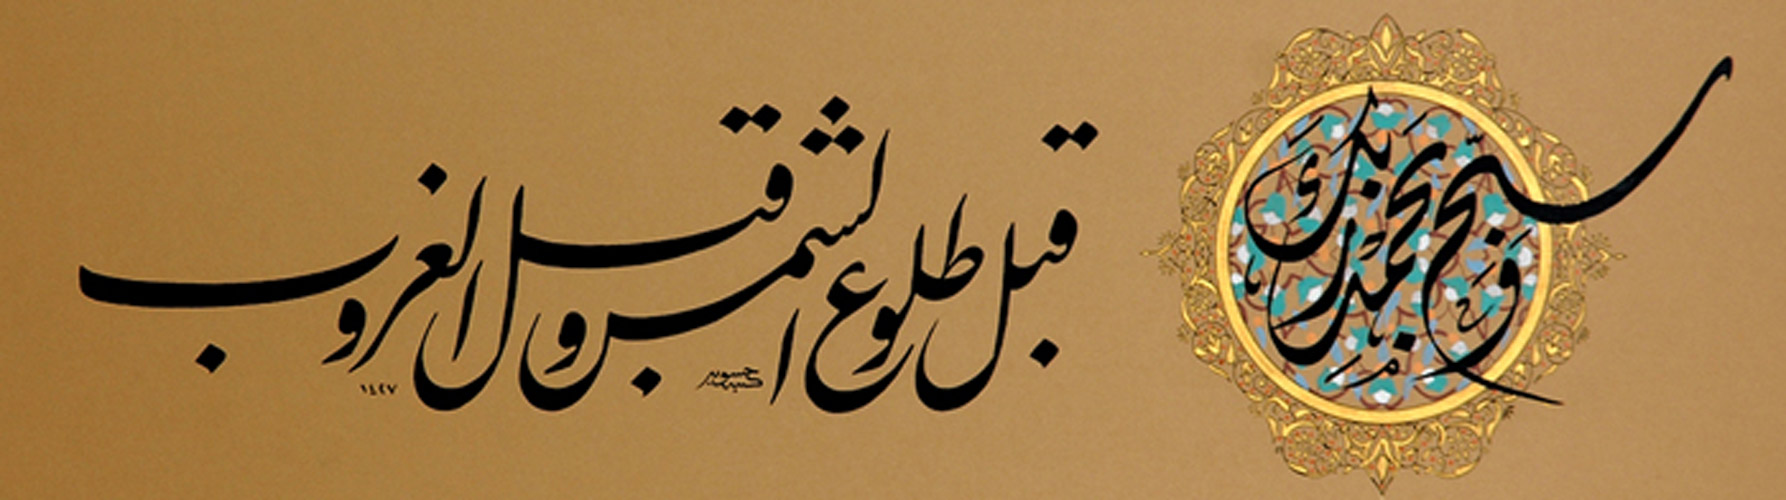 وسبّح بحمد ربك قبل طلوع الشمس وقبل الغروب
١٤٢٧